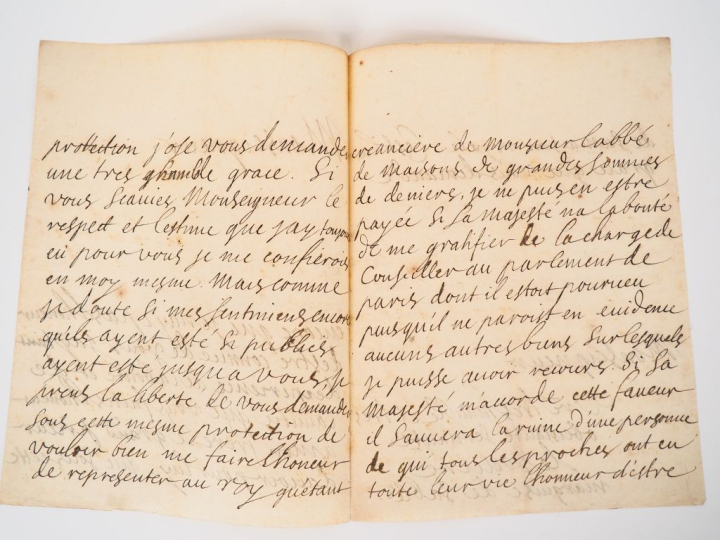 protection j'ose vous demander
une tres grande grace. Si
vous scauiés Monseigneur le
respect et lestime que jay toujours
eü pour vous je me confierois
en moy mesme. Mais comme
je doute si mes sentimens encore
quils ayent esté si publics
ayent esté jusqu a vous, je
prens la liberté de vous demander
sous cette mesme protection de
vouloir bien me faire lhoneur
de representer au roy quétant
creanciére de Monsieur labbé
de maisons de grandes sommes
de deniers, je ne puis en estre
payée si sa Majesté na la bonté
de me gratifier de la charge de
Conseiller au parlement de
paris dont il estoit pourueu
puisquil ne paroist en euidence
aucuns autres biens sur lesquels
je puisse auoir recours. Si sa
Majesté m'acorde cette faueur
il sauuera la ruine d'une personne
de qui tous les proches ont eu
toute leur vie lhonneur d'estre